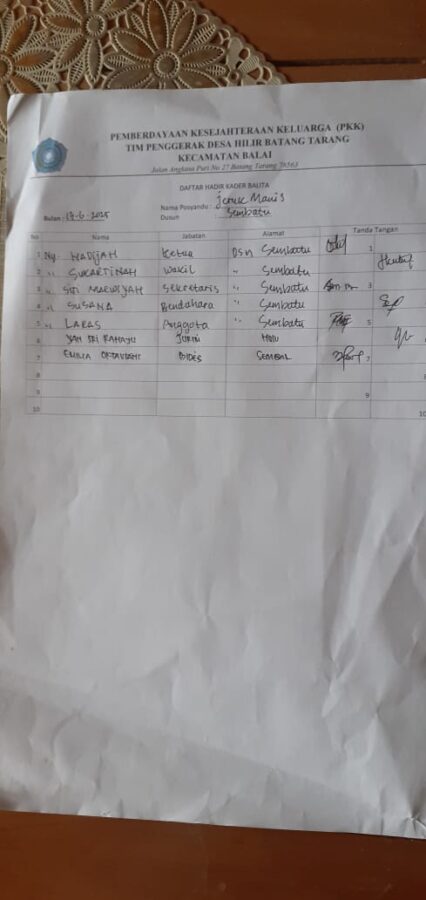 PEMBERDAYAAN KESEJAHTERAAN KELUARGA (PKK)
TIM PENGGERAK DESA HILIR BATANG TARANG
KECAMATAN BALAI
Jalan Angkasa Puri No 27 Batang Tarang 78563
DAFTAR HADIR KADER BALITA
Nama Posyandu : Jeruk Manis
Bulan : 17-6-2025 Dusun : Sembatu
No Nama Jabatan Alamat Tanda Tangan
1 Ny. HADIJAH Ketua DSN Sembatu 1
2 " SUKARTINAH Wakil " Sembatu
3 " SITI MARWIYAH Sekretaris " Sembatu 3
4 " SUSANA Bendahara " Sembatu
5 " LARAS Anggota " Sembatu 5
6 SRI RAHAYU
7 EMILIA OKTAVIANI BIDES 7
8
9 9
10 10